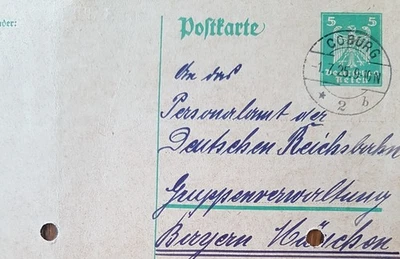 nder:
Postkarte
5 5
Deutsches
Reich
COBURG
-1.7.25.
* 2 b
An das
Personalamt der
Deutschen Reichsbahn
Gruppenverwaltung
Bayern München